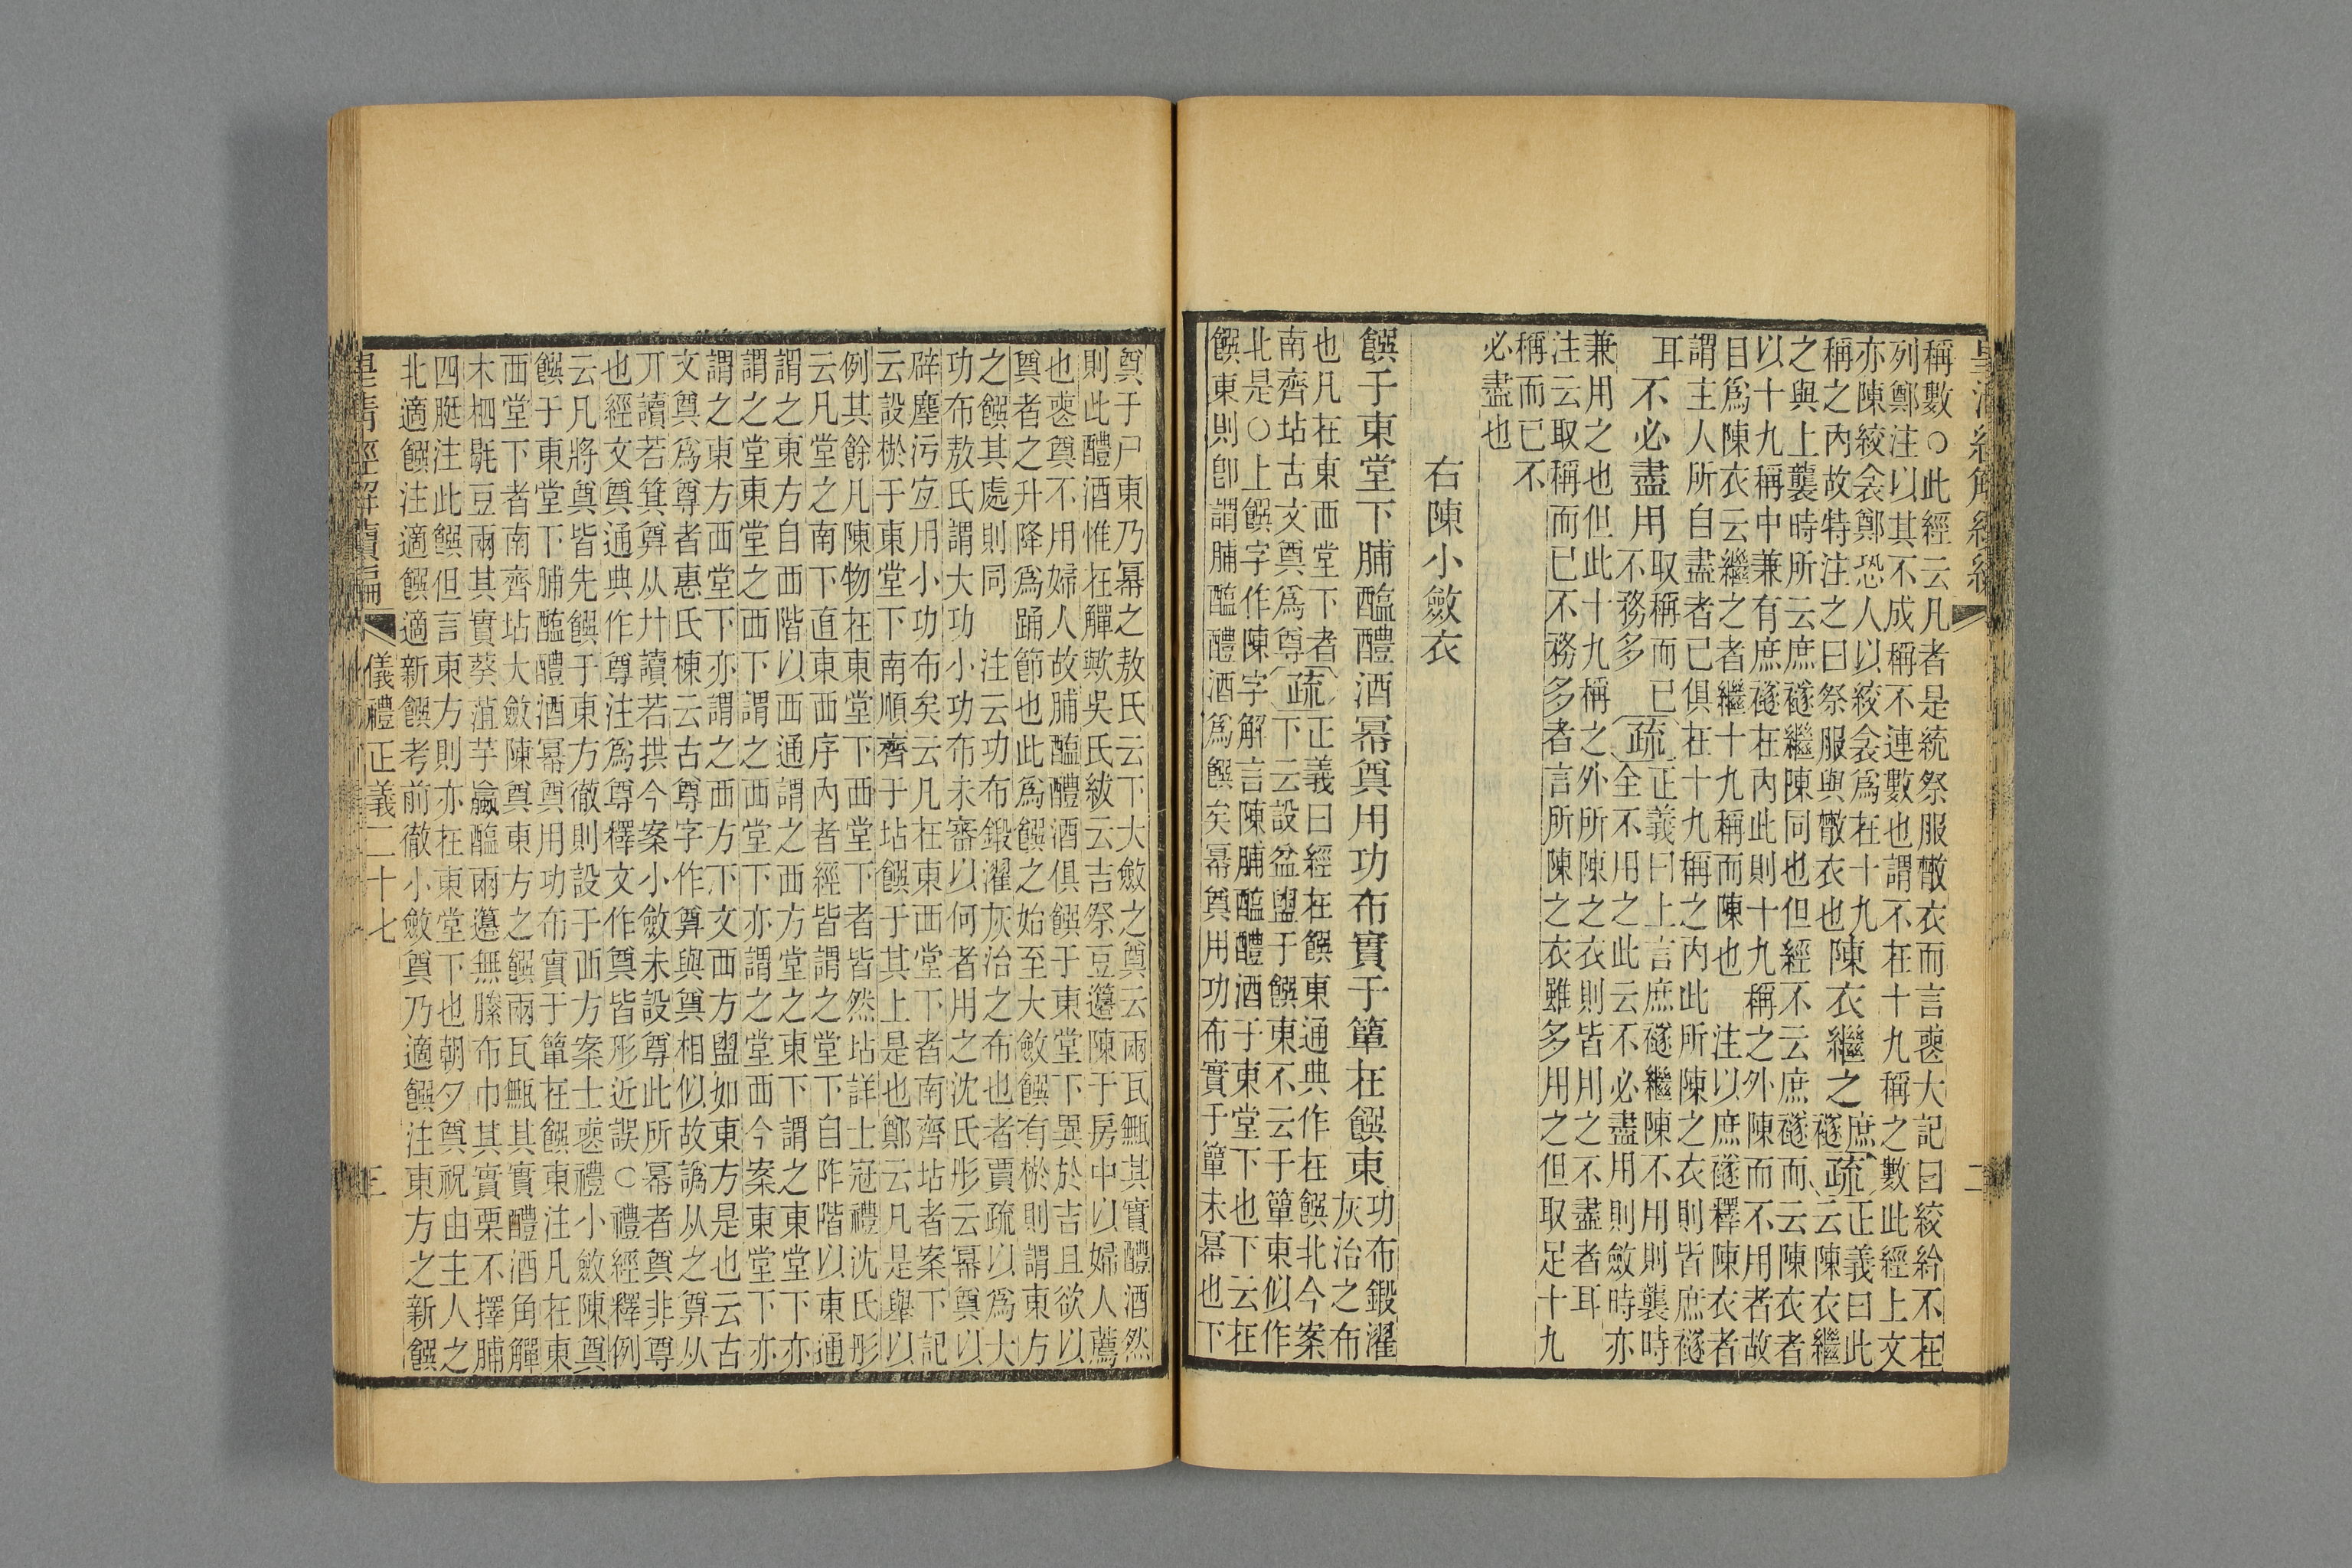 皇清經解續編
二
稱數○此經云凡者是統祭服散衣而言喪大記曰絞紟不在
列鄭注以其不成稱不連數也謂不在十九稱之數此經上文
亦陳絞衾鄭恐人以絞衾爲在十九
稱之內故特注之曰祭服與散衣也
陳衣繼之
庶
襚
疏
正義曰此
云陳衣繼
之與上襲時所云庶襚繼陳同也但經不云庶襚而云陳衣者
以十九稱中兼有庶襚在內此則十九稱之外陳而不用者故
目爲陳衣云繼之者繼十九稱而陳也　注以庶襚釋陳衣者
謂主人所自盡者已俱在十九稱之內此所陳之衣則皆庶襚
耳
不必盡用
取稱而已
不務多
疏
正義曰上言庶襚繼陳不用則襲時
全不用之此云不必盡用則斂時亦
兼用之也但此十九稱之外所陳之衣則皆用之不盡者耳
注云取稱而已不務多者言所陳之衣雖多用之但取足十九
稱而已不
必盡也
右陳小斂衣
饌于東堂下脯醢醴酒冪奠用功布實于簞在饌東
功布鍛濯
灰治之布
也凡在東西堂下者
南齊坫古文奠爲尊
疏
正義曰經在饌東通典作在饌北今案
下云設盆盥于饌東不云于簞東似作
北是○上饌字作陳字解言陳脯醢醴酒于東堂下也下云在
饌東則卽謂脯醢醴酒爲饌矣冪奠用功布實于簞未冪也下
奠于尸東乃冪之敖氏云下大斂之奠云兩瓦甒其實醴酒然
則此醴酒惟在觶歟吳氏紱云吉祭豆籩陳于房中以婦人薦
也喪奠不用婦人故脯醢醴酒俱饌于東堂下異於吉且欲以
奠者之升降爲踊節也此爲饌之始至大斂饌有棜則謂東方
之饌其處則同　注云功布鍛濯灰治之布也者賈疏以爲大
功布敖氏謂大功小功布未審以何者用之沈氏彤云冪奠以
辟塵污宐用小功布矣云凡在東西堂下者南齊坫者案下記
云設棜于東堂下南順齊于坫饌于其上是也鄭云凡是舉以
例其餘凡陳物在東堂下西堂下者皆然坫詳士冠禮沈氏彤
云凡堂之南下直東西序內者經皆謂之堂下自阼階以東通
謂之東方自西階以西通謂之西方堂之東下謂之東堂下亦
謂之堂東堂之西下謂之西堂下亦謂之堂西今案東堂下亦
謂之東方西堂下亦謂之西方下文西方盥如東方是也云古
文奠爲尊者惠氏棟云古尊字作尊與奠相似故譌从之尊从
丌讀若箕尊从廾讀若拱今案小斂未設尊此所冪者奠非尊
也經文奠通典作尊注爲尊釋文作奠皆形近誤○禮經釋例
云凡將奠皆先饌于東方徹則設于西方案士喪禮小斂陳奠
饌于東堂下脯醢醴酒冪奠用功布實于簞在饌東注凡在東
西堂下者南齊坫大斂陳奠東方之饌兩瓦甒其實醴酒角觶
木柶毼豆兩其實葵菹芋蠃醢兩籩無縢布巾其實栗不擇脯
四脡注此饌但言東方則亦在東堂下也朝夕奠祝由主人之
北適饌注適饌適新饌考前徹小斂奠乃適饌注東方之新饌
皇清經解續編
儀禮正義二十七
三